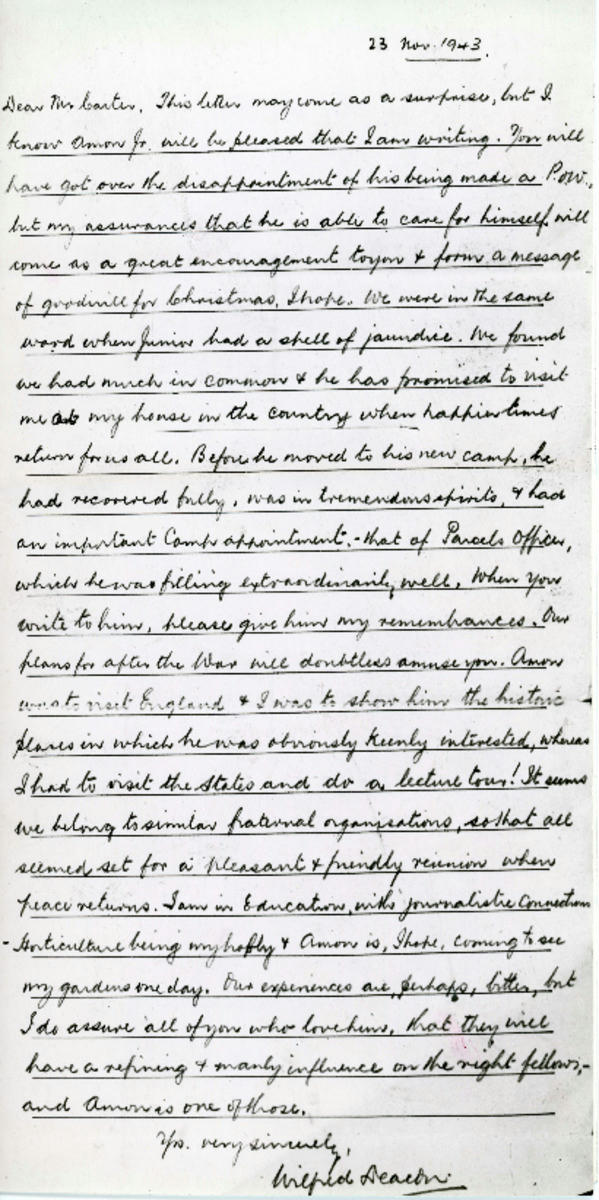 23 Nov. 1943.
Dear Mr Carter, This letter may come as a surprise, but I
know Amon Jr. will be pleased that I am writing. You will
have got over the disappointment of his being made a P.O.W.,
but my assurances that he is able to care for himself will
come as a great encouragement to you & form a message
of goodwill for Christmas, I hope. We were in the same
ward when Junior had a spell of jaundice. We found
we had much in common & he has promised to visit
me at my house in the country when happier times
return for us all. Before he moved to his new camp, he
had recovered fully, was in tremendous spirits, & had
an important Camp appointment, - that of Parcels Officer,
which he was filling extraordinarily well. When you
write to him, please give him my remembrances. Our
plans for after the War will doubtless amuse you. Amon
was to visit England & I was to show him the historic
places in which he was obviously keenly interested, whereas
I had to visit the States and do a lecture tour! It seems
we belong to similar fraternal organisations, so that all
seemed set for a pleasant & friendly reunion when
peace returns. I am in Education, with journalistic connections
- Horticulture being my hobby & Amon is, I hope, coming to see
my gardens one day. Our experiences are, perhaps, bitter, but
I do assure all of you who love him, that they will
have a refining & manly influence on the right fellows, -
and Amon is one of those.
Yrs. very sincerely,
Wilfred Deacon.